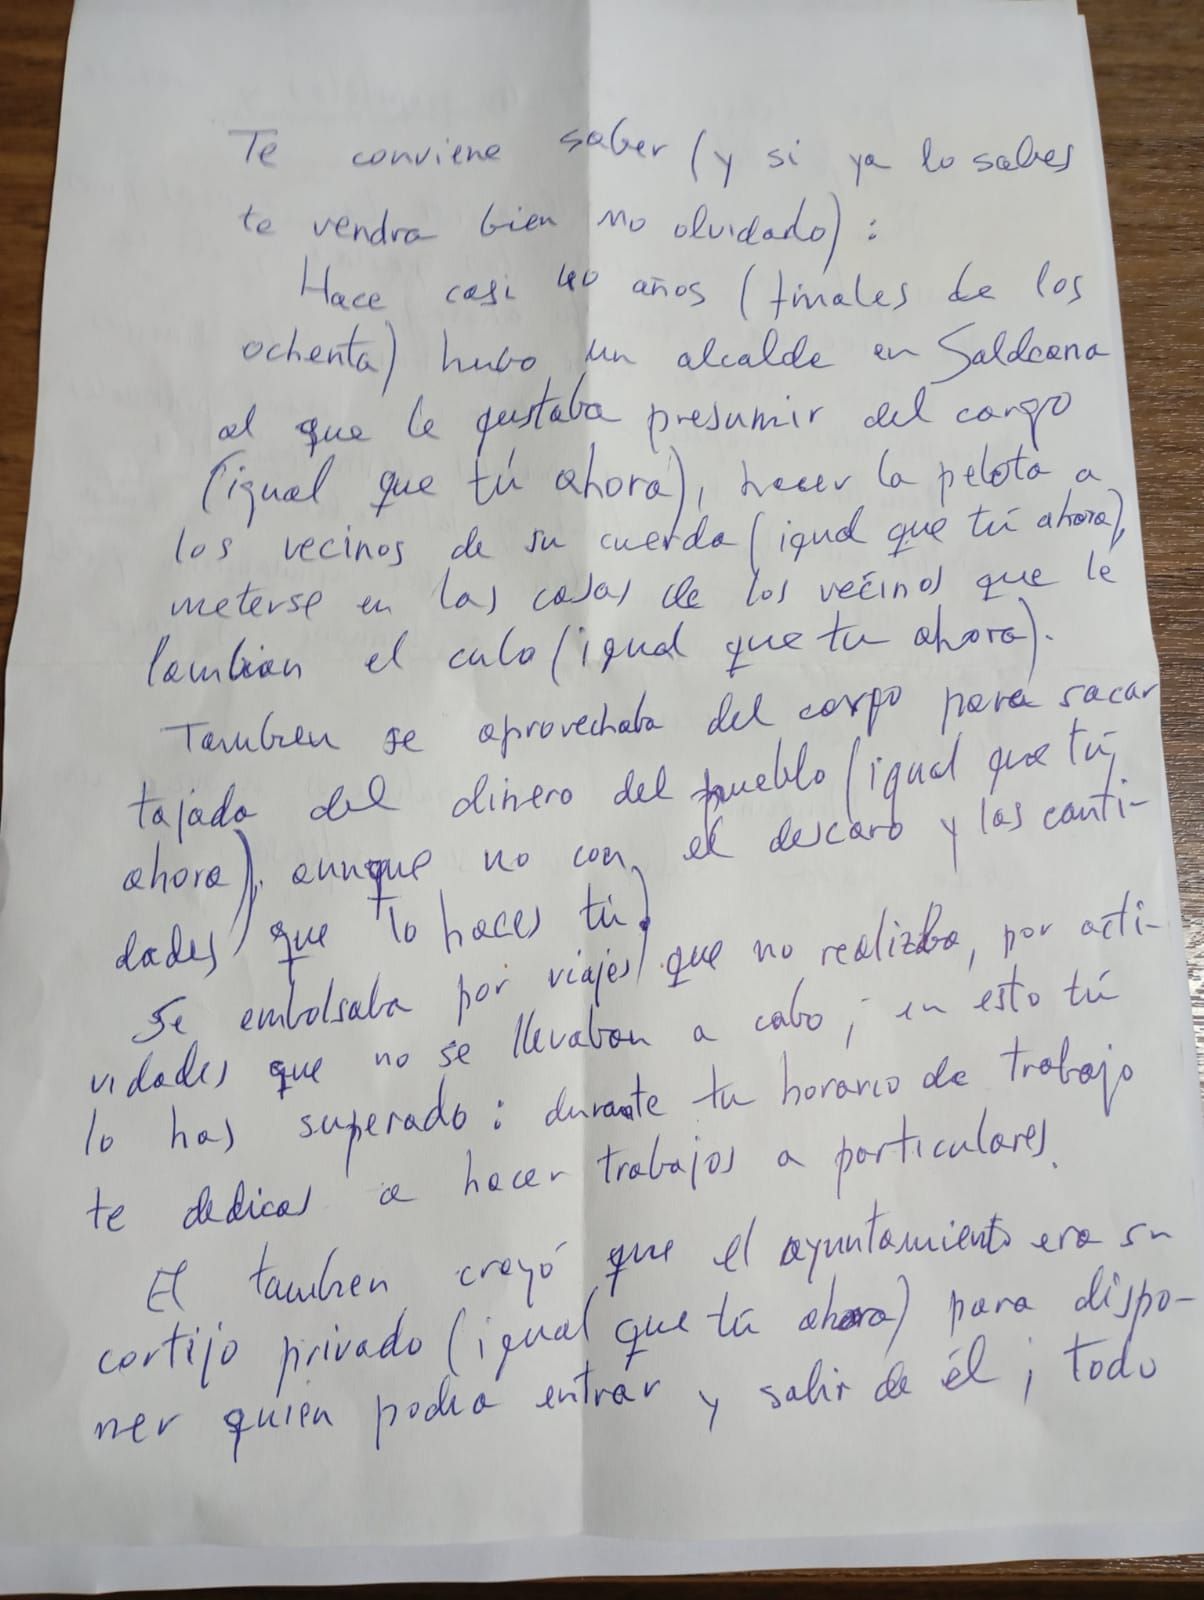 Te conviene saber (y si ya lo sabes
te vendra bien no olvidado) :
Hace casi 40 años (finales de los
ochenta) hubo un alcalde en Saldeana
al que le gustaba presumir del cargo
(igual que tú ahora), hacer la pelota a
los vecinos de su cuerda (igual que tú ahora),
meterse en las casas de los vecinos que le
lambian el culo (igual que tu ahora).
Tambien se aprovechaba del cargo para sacar
tajada del dinero del pueblo (igual que tú
ahora), aunque no con el descaro y las canti-
dades que lo haces tú.
Se embolsaba por viajes que no realizba, por acti-
vidades que no se llevaban a cabo ; en esto tú
lo has superado : durante tu horario de trabajo
te dedicas a hacer trabajos a particulares.
El tambien creyó que el ayuntamiento era su
cortijo privado (igual que tú ahora) para dispo-
ner quien podia entrar y salir de él ; todo